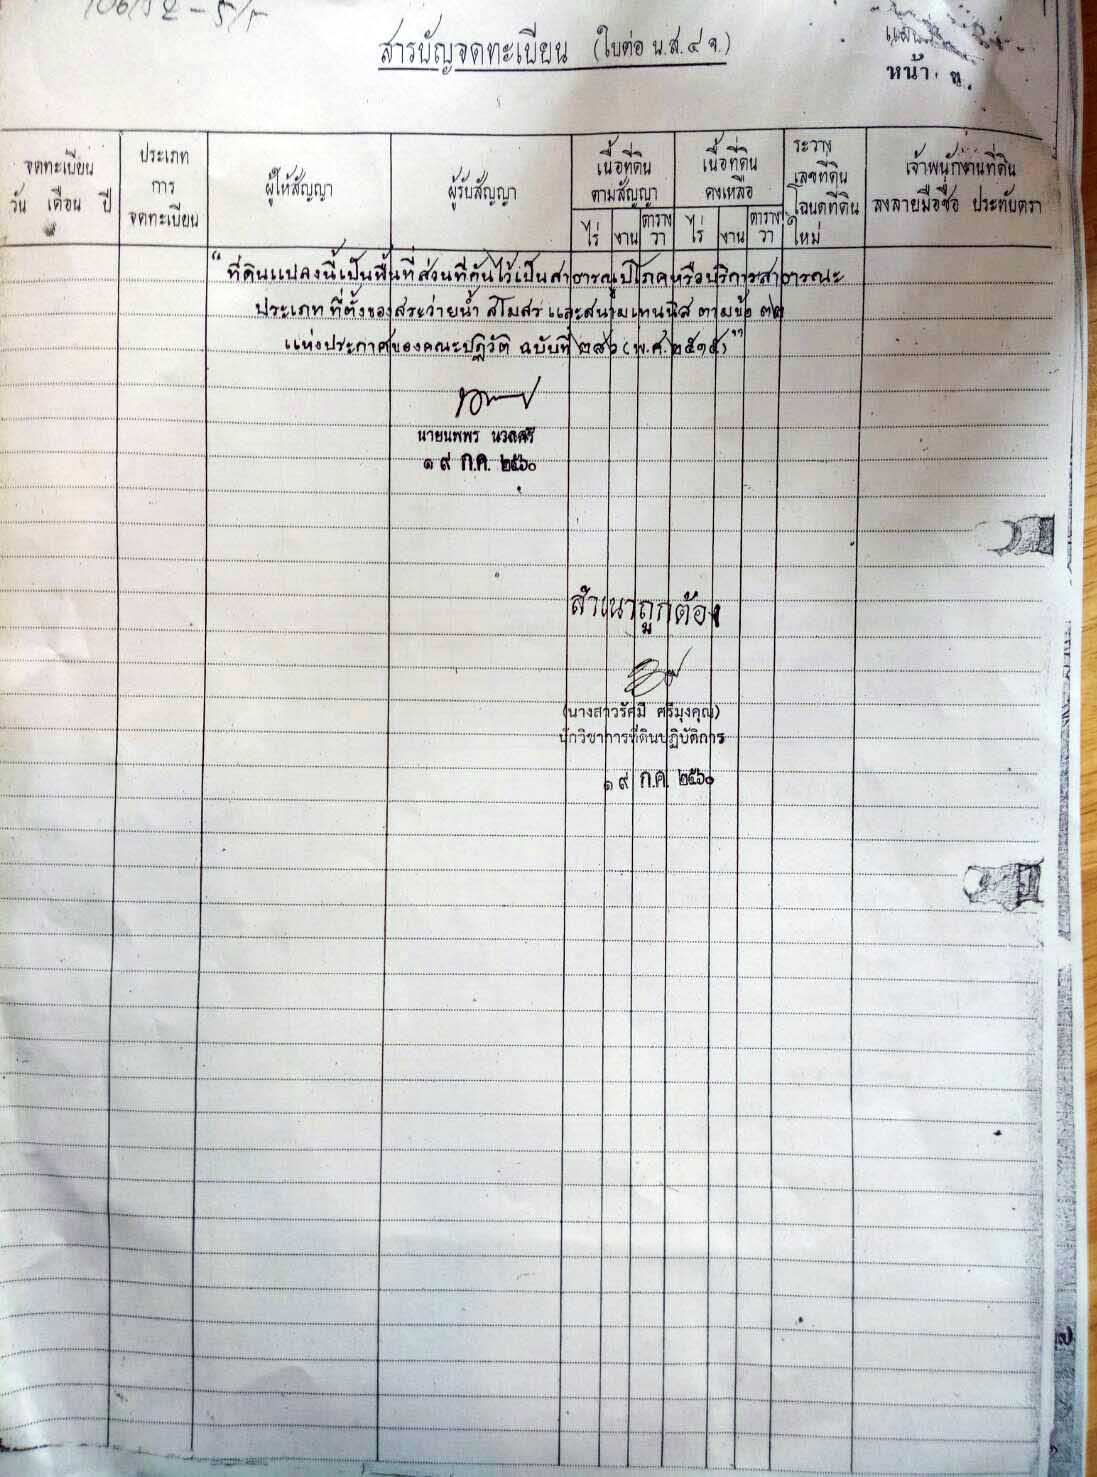 106/52 - 5/5
สารบัญจดทะเบียน (ใบต่อ น.ส.๔ จ.)
หน้า
จดทะเบียน
วัน เดือน ปี
ประเภท
การ
จดทะเบียน
ผู้ให้สัญญา
ผู้รับสัญญา
เนื้อที่ดิน
ตามสัญญา
ไร่ งาน ตาราง
วา
เนื้อที่ดิน
คงเหลือ
ไร่ งาน ตาราง
วา
ระวาง
เลขที่ดิน
โฉนดที่ดิน
ใหม่
เจ้าพนักงานที่ดิน
ลงลายมือชื่อ ประทับตรา
"ที่ดินแปลงนี้เป็นพื้นที่ส่วนที่กันไว้เป็นสาธารณูปโภคหรือบริการสาธารณะ
ประเภท ที่ตั้งของสระว่ายน้ำ สโมสร และสนามเทนนิส ตามข้อ ๓๒
แห่งประกาศของคณะปฏิวัติ ฉบับที่ ๒๘๖ (พ.ศ. ๒๕๑๕)"
นายนพพร นวลศรี
๑๙ ก.ค. ๒๕๖๐
สำเนาถูกต้อง
(นางสาวรัศมี ศรีมุงคุณ)
นักวิชาการที่ดินปฏิบัติการ
๑๙ ก.ค. ๒๕๖๐